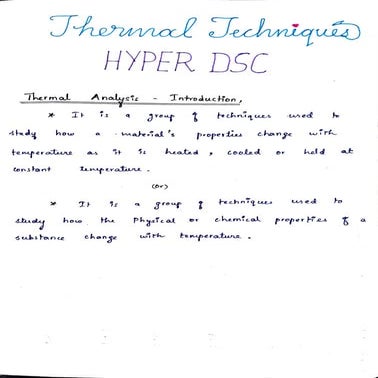 Thermal Techniques
HYPER DSC
Thermal Analysis - Introduction,
* It is a group of techniques used to
study how a material's properties change with
temperature as it is heated, cooled or held at
constant temperature.
(or)
* It is a group of techniques used to
study how the Physical or chemical properties of a
substance change with temperature.